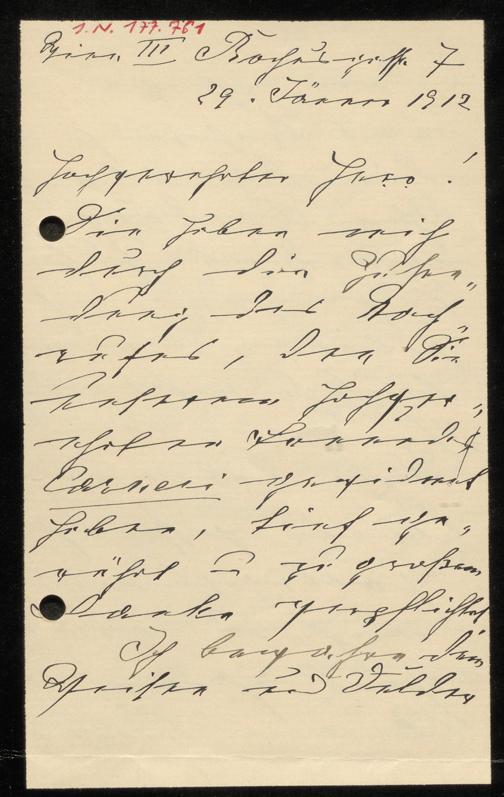 I. N. 177.761
Wien III Rochusgasse 7
29. Jänner 1912
Hochgeehrter Herr!
Sie haben mich
durch die Zusen„
dung des Nach„
rufes, den Sie
unserem hochge„
ehrten Freunde
Carneri gewidmet
haben, tief ge„
rührt u zu großem
Danke verpflichtet
Ich bewahre dem
Weisen und Dulder